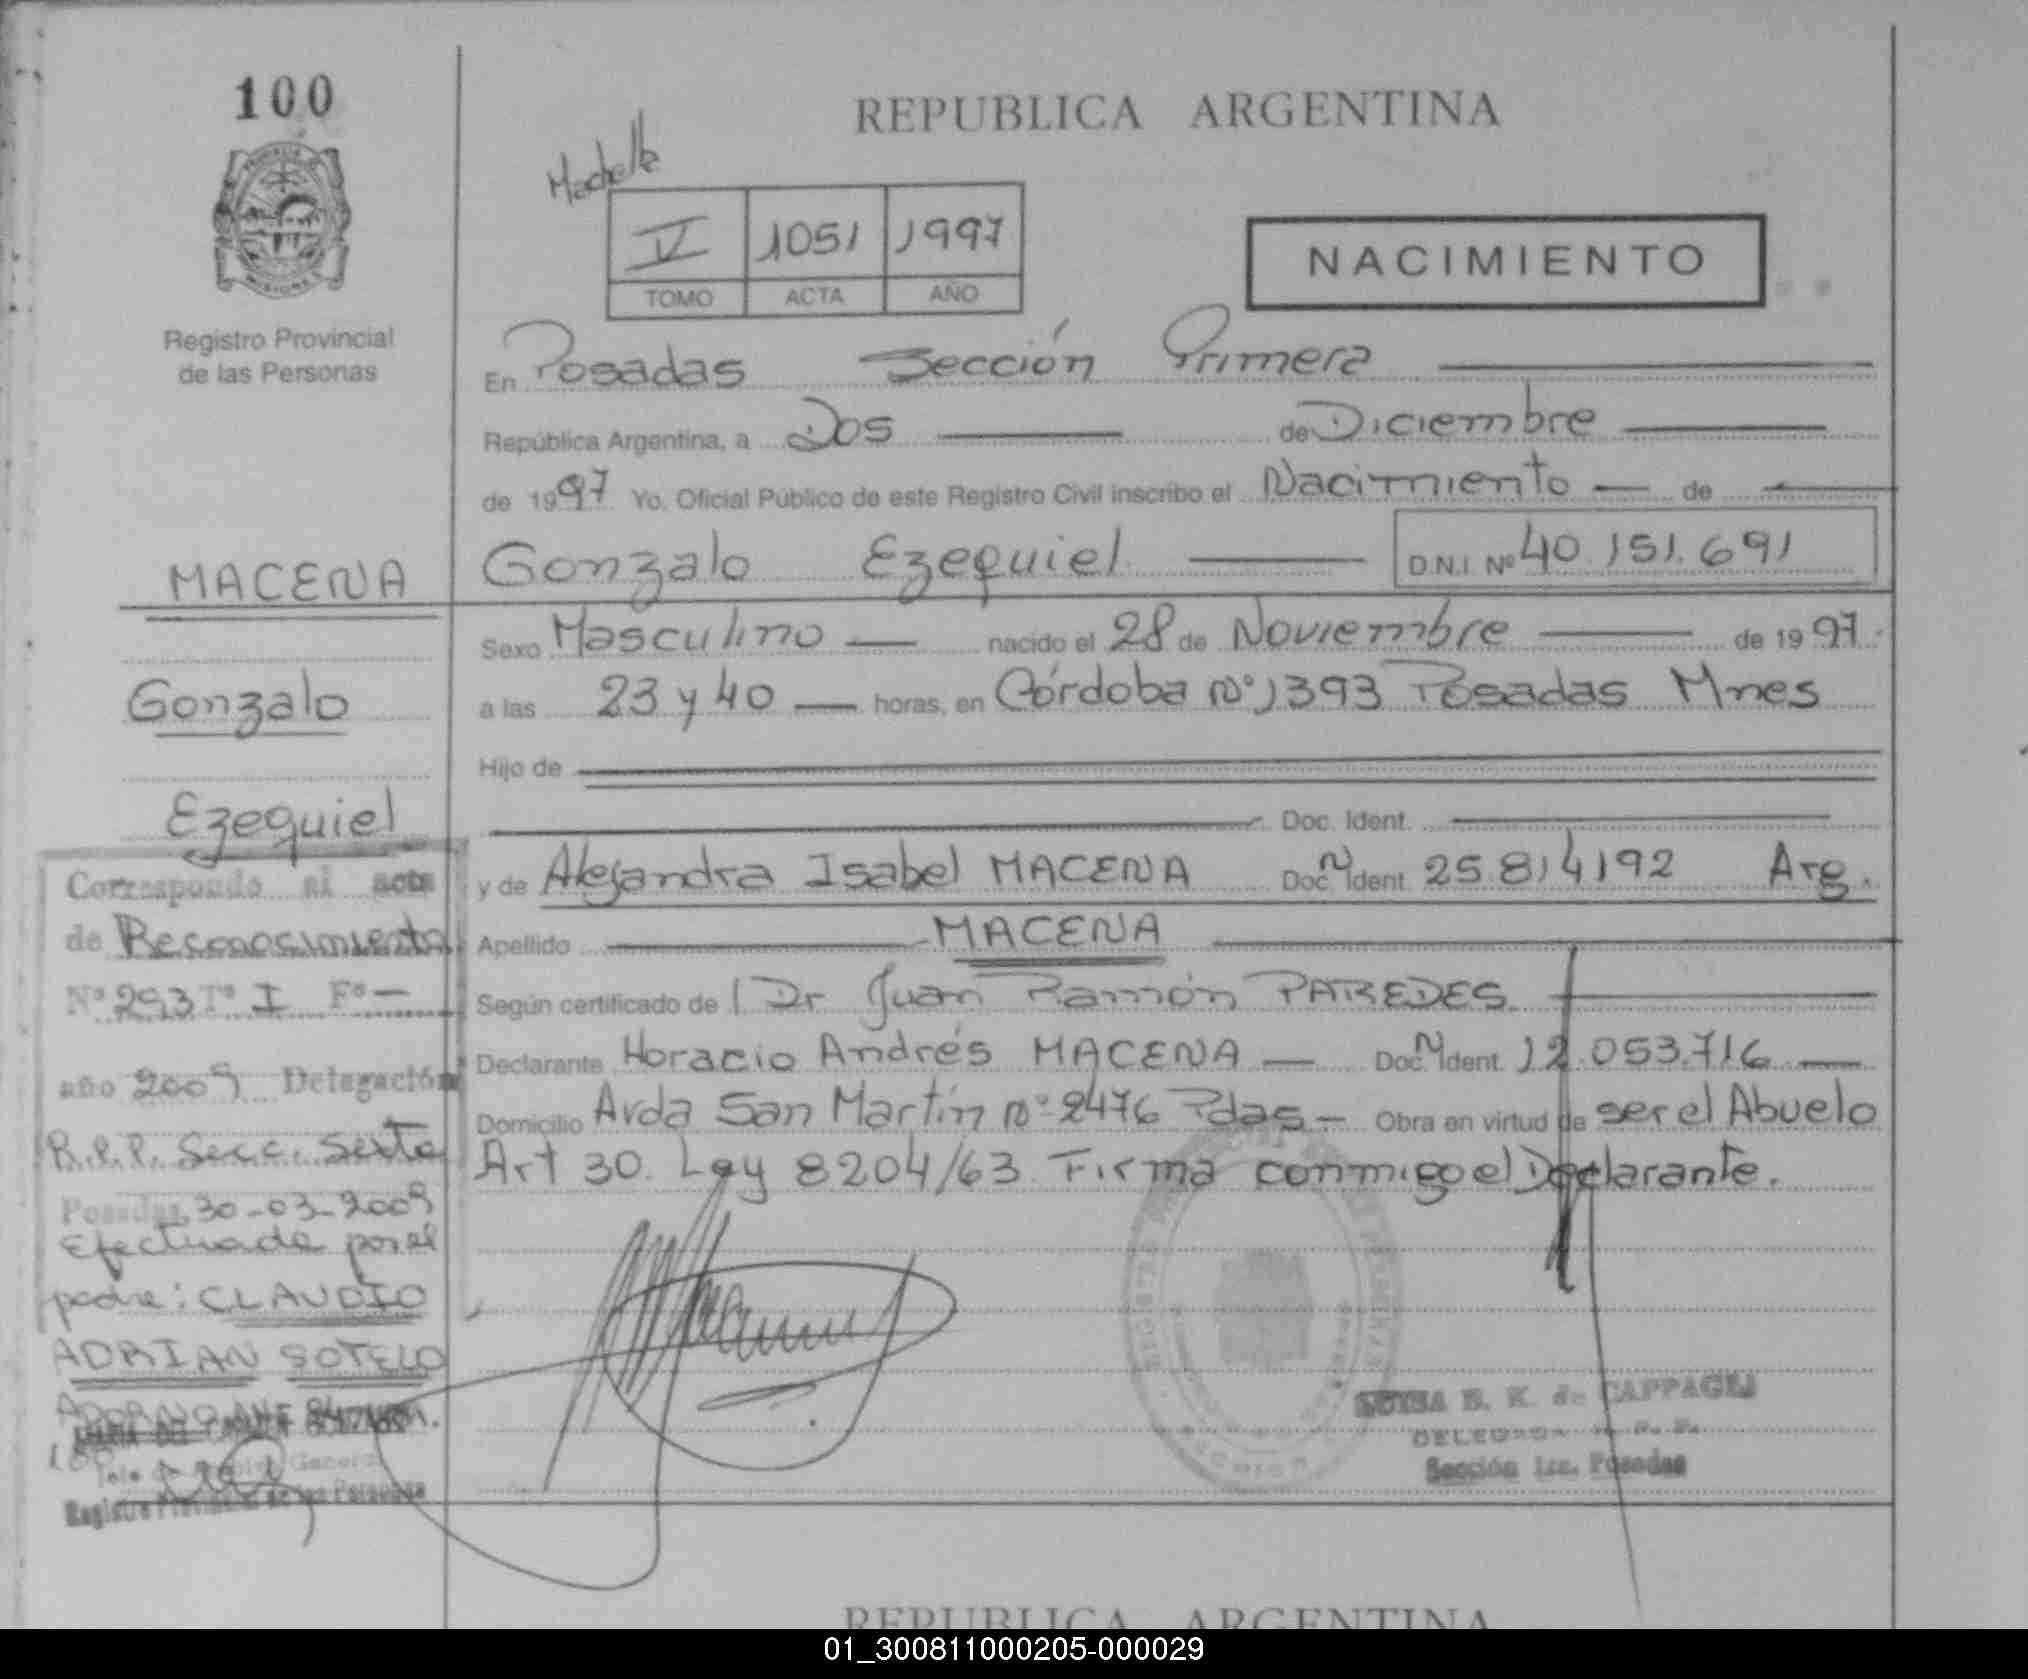 100
REPUBLICA ARGENTINA
V 1051 1997
TOMO ACTA AÑO
NACIMIENTO
Registro Provincial
de las Personas
En Posadas Sección Primera
República Argentina, a Dos de Diciembre
de 1997 Yo, Oficial Público de este Registro Civil inscribo el Nacimiento de
MACENA
Gonzalo Ezequiel D.N.I. Nº 40.151.691
Sexo Masculino nacido el 28 de Noviembre de 1997
Gonzalo
a las 23 y 40 horas, en Córdoba Nº 1393 Posadas Mnes
Hijo de
Ezequiel
Doc. Ident.
y de Alejandra Isabel MACENA Doc. N Ident. 25.814.192 Arg.
Apellido MACENA
Según certificado de Dr Juan Ramón PAREDES.
Declarante Horacio Andrés MACENA Doc. N Ident. 12.053.716
Domicilio Avda San Martín Nº 2476 Pdas - Obra en virtud de ser el Abuelo
Art 30. Ley 8204/63 Firma conmigo el Declarante.
Corresponde al acta
de Reconocimiento
Nº 293 Tº I Fº -
año 2009 Delegación
R.P.P. Secc. Sexta
Posadas, 30-03-2009
Efectuada por el
padre: CLAUDIO
ADRIAN SOTELO
General
Registro Provincial de las Personas
B. K. de CAPPAGLI
Sección 1ra. Posadas
REPUBLICA ARGENTINA
01_300811000205-000029